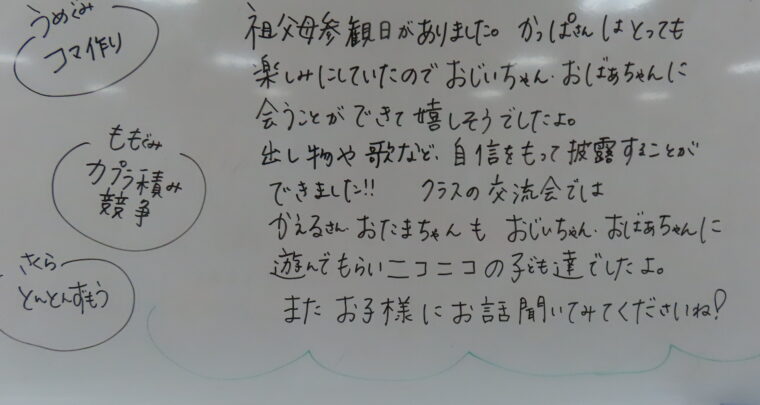 うめぐみ
コマ作り
ももぐみ
カプラ積み
競争
さくら
とんとんずもう
祖父母参観日がありました。かっぱさんはとっても
楽しみにしていたので おじいちゃん・おばあちゃんに
会うことが できて 嬉しそうでしたよ。
出し物や 歌など、自信をもって 披露することが
できました!! クラスの交流会では
かえるさん・おたまちゃんも おじいちゃん・おばあちゃんに
遊んでもらい ニコニコの子ども達でしたよ。
また お子様に お話聞いてみてくださいね!